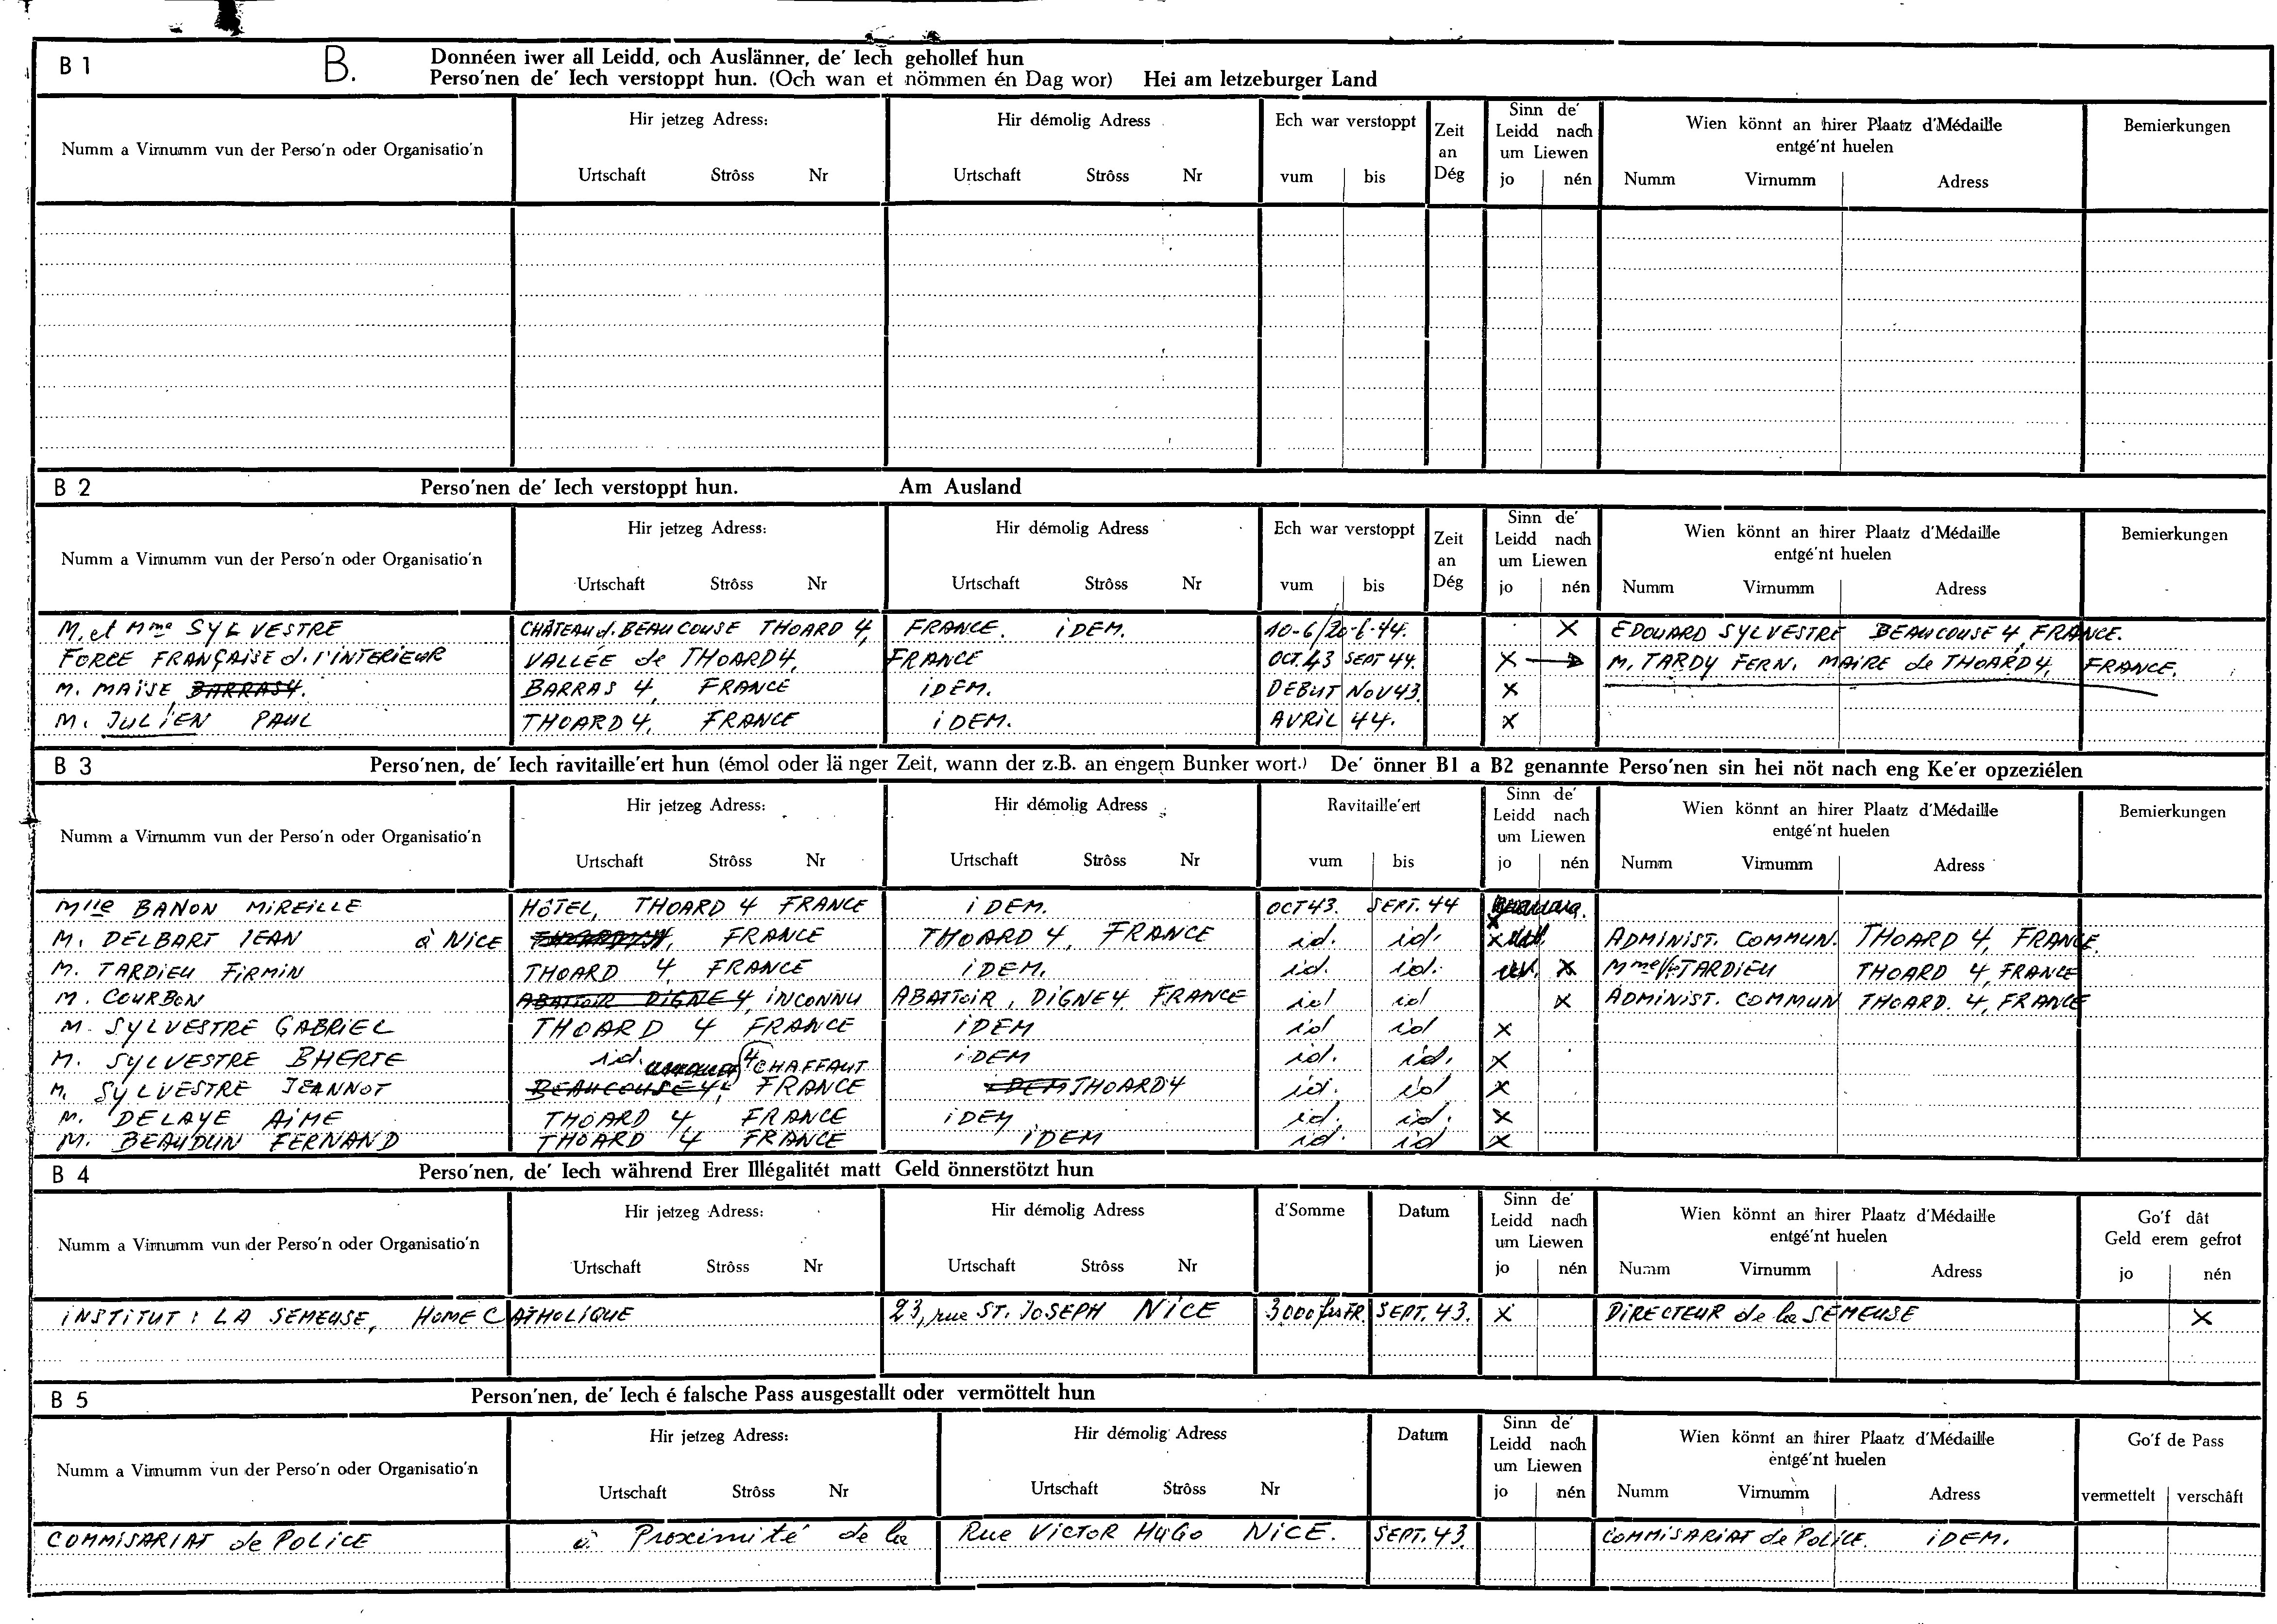 B 1 B. Donnéen iwer all Leidd, och Auslänner, de' Iech gehollef hun
Perso'nen de' Iech verstoppt hun. (Och wan et nömmen én Dag wor) Hei am letzeburger Land
Numm a Virnumm vun der Perso'n oder Organisatio'n
Hir jetzeg Adress:
Urtschaft Strôss Nr
Hir démolig Adress
Urtschaft Strôss Nr
Ech war verstoppt
vum bis
Zeit
an
Dég
Sinn de'
Leidd nach
um Liewen
jo nén
Wien könnt an hirer Plaatz d'Médaille
entgé'nt huelen
Numm Virnumm Adress
Bemierkungen
B 2 Perso'nen de' Iech verstoppt hun. Am Ausland
Numm a Virnumm vun der Perso'n oder Organisatio'n
Hir jetzeg Adress:
Urtschaft Strôss Nr
Hir démolig Adress
Urtschaft Strôss Nr
Ech war verstoppt
vum bis
Zeit
an
Dég
Sinn de'
Leidd nach
um Liewen
jo nén
Wien könnt an hirer Plaatz d'Médaille
entgé'nt huelen
Numm Virnumm Adress
Bemierkungen
M. et Mme SYLVESTRE CHÂTEAU d. BEAUCOUSE THOARD 4, FRANCE. iDEM. 10-6/20-6-44. X EDOUARD SYLVESTRE BEAUCOUSE 4, FRANCE.
FORCE FRANÇAISE d. l'INTERIEUR VALLÉE de THOARD 4, FRANCE OCT. 43 SEPT 44. X M. TARDY FERN. MAIRE de THOARD 4, FRANCE.
M. MAISE BARRAS 4. BARRAS 4, FRANCE iDEM. DEBUT NOV 43. X
M. JULIEN PAUL THOARD 4, FRANCE iDEM. AVRIL 44. X
B 3 Perso'nen, de' Iech ravitaille'ert hun (émol oder lä nger Zeit, wann der z.B. an engem Bunker wort.) De' önner B1 a B2 genannte Perso'nen sin hei nöt nach eng Ke'er opzeziélen
Numm a Virnumm vun der Perso'n oder Organisatio'n
Hir jetzeg Adress:
Urtschaft Strôss Nr
Hir démolig Adress
Urtschaft Strôss Nr
Ravitaille'ert
vum bis
Sinn de'
Leidd nach
um Liewen
jo nén
Wien könnt an hirer Plaatz d'Médaille
entgé'nt huelen
Numm Virnumm Adress
Bemierkungen
Mlle BANON MIREILLE HÔTEL, THOARD 4 FRANCE iDEM. OCT 43. SEPT. 44
M. DELBART JEAN à NICE FRANCE THOARD 4, FRANCE id. id. X ADMINIST. COMMUN. THOARD 4, FRANCE.
M. TARDIEU FIRMIN THOARD 4 FRANCE iDEM. id. id. X Mme Vve TARDIEU THOARD 4, FRANCE
M. COURBON ABATTOIR DIGNE 4, INCONNU ABATTOIR, DIGNE 4. FRANCE id id X ADMINIST. COMMUN THOARD. 4, FRANCE
M. SYLVESTRE GABRIEL THOARD 4 FRANCE iDEM id id X
M. SYLVESTRE BHERTE id. iDEM id. id. X
4 CHAFFAUT
M. SYLVESTRE JEANNOT BEAUCOUSE 4, FRANCE iDEM THOARD 4 id. id X
M. DELAYE AIME THOARD 4, FRANCE iDEM id. id. X
M. BEAUDUN FERNAND THOARD 4 FRANCE iDEM id. id X
B 4 Perso'nen, de' Iech während Erer Illégalitét matt Geld önnerstötzt hun
Numm a Virnumm vun der Perso'n oder Organisatio'n
Hir jetzeg Adress:
Urtschaft Strôss Nr
Hir démolig Adress
Urtschaft Strôss Nr
d'Somme
Datum
Sinn de'
Leidd nach
um Liewen
jo nén
Wien könnt an hirer Plaatz d'Médaille
entgé'nt huelen
Numm Virnumm Adress
Go'f dât
Geld erem gefrot
jo nén
INSTITUT: LA SEMEUSE, HOME CATHOLIQUE 23, rue ST. JOSEPH NICE 3000 frs FR. SEPT. 43. X DIRECTEUR de la SEMEUSE X
B 5 Person'nen, de' Iech é falsche Pass ausgestallt oder vermöttelt hun
Numm a Virnumm vun der Perso'n oder Organisatio'n
Hir jetzeg Adress:
Urtschaft Strôss Nr
Hir démolig Adress
Urtschaft Strôss Nr
Datum
Sinn de'
Leidd nach
um Liewen
jo nén
Wien könnt an hirer Plaatz d'Médaille
entgé'nt huelen
Numm Virnumm Adress
Go'f de Pass
vermettelt verschâft
COMMISARIAT de POLICE à Proximité de la Rue VICTOR HUGO NICE. SEPT. 43. COMMISARIAT de POLICE. iDEM.